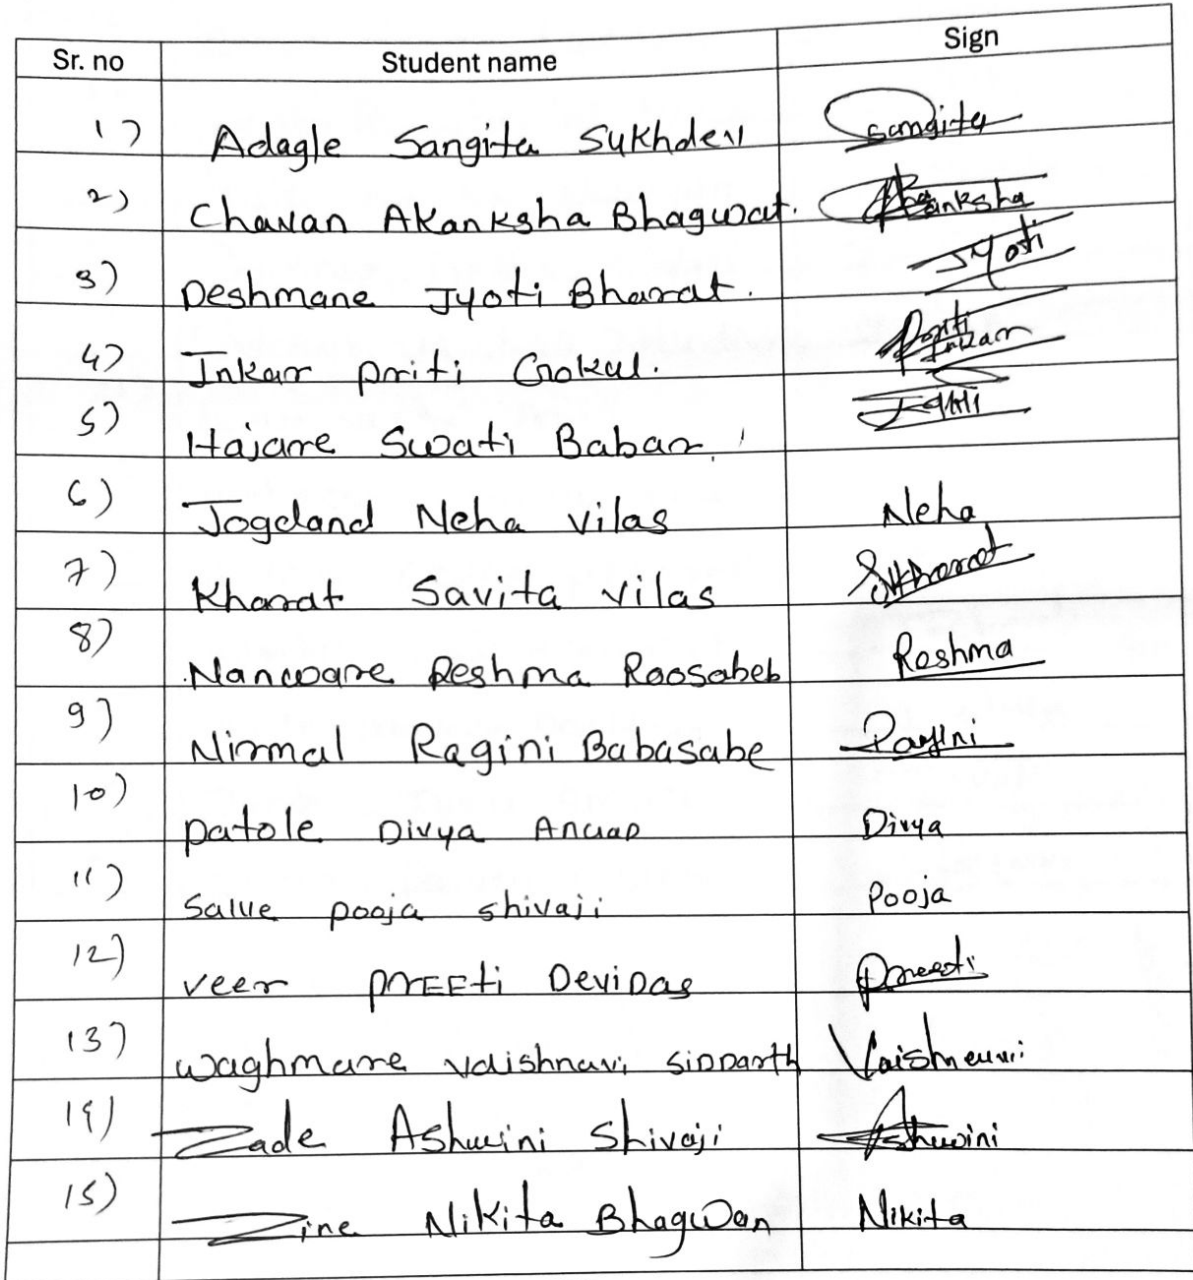 Sr. no Student name Sign
1) Adagle Sangita Sukhdev Sangita
2) Chavan Akanksha Bhagwat. Akanksha
3) Deshmane Jyoti Bharat. Jyoti
4) Inkar priti Gokul. Priti Inkar
5) Hajare Swati Baban.
6) Jogdand Neha Vilas Neha
7) Kharat Savita Vilas SVKharat
8) Nanware Reshma Raosaheb Reshma
9) Nirmal Ragini Babasahe Ragini
10) Patole Divya Divya
11) Salve pooja shivaji Pooja
12) veer PREEti DeviDas Preeti
13) waghmare vaishnavi SIDDarth Vaishnavi
14) Zade Ashwini Shivaji Ashwini
15) Zine Nikita Bhagwan Nikita